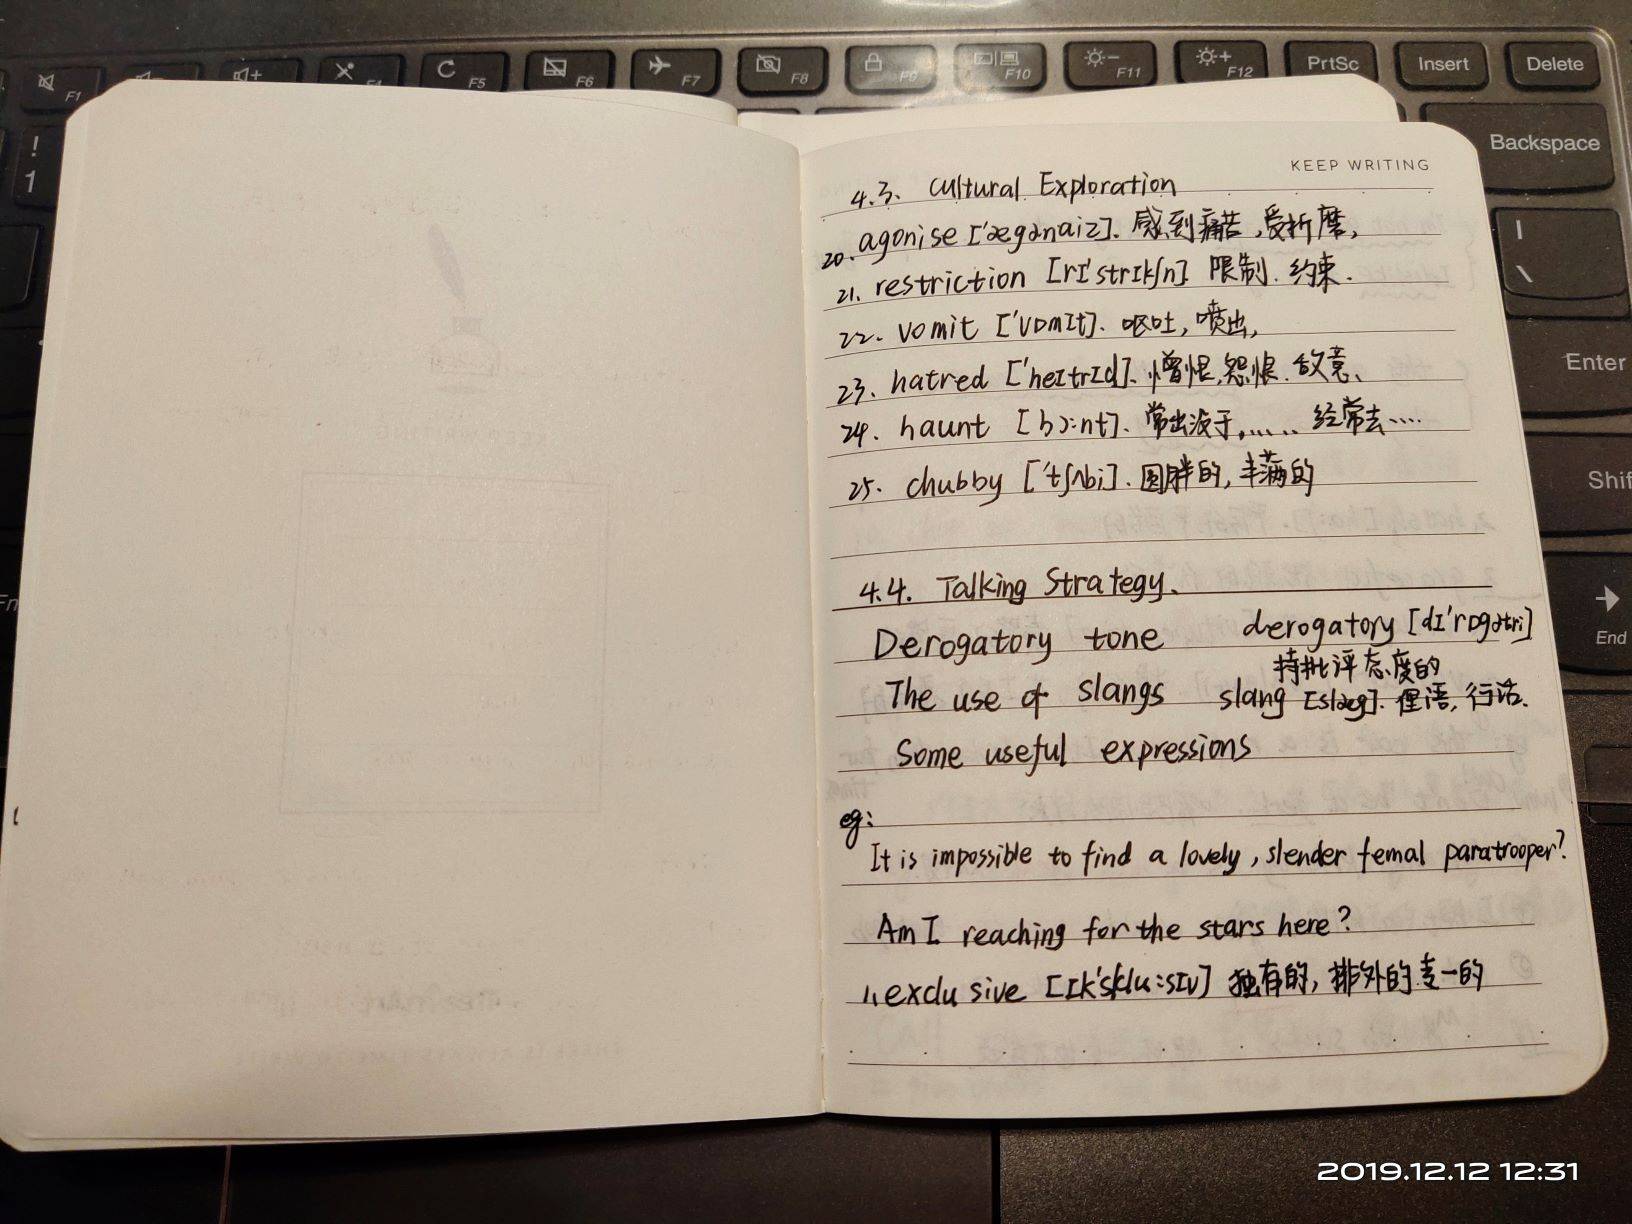 F1
F4
F5
F6
F7
F8
F9
F10
F11
F12
PrtSc
Insert
Delete
!
1
Backspace
|
\
Enter
Shif
End
Fn
KEEP WRITING
4.3. Cultural Exploration
20. agonise ['ægənaiz]. 感到痛苦,受折磨,
21. restriction [rɪ'strɪkʃn] 限制. 约束.
22. vomit ['vɒmɪt]. 呕吐, 喷出,
23. hatred ['heɪtrɪd]. 憎恨,怨恨. 敌意、
24. haunt [hɔ:nt]. 常出没于,..... 经常去....
25. chubby ['tʃʌbi]. 圆胖的, 丰满的
4.4. Talking Strategy.
Derogatory tone derogatory [dɪ'rɒgətri]
持批评态度的
The use of slangs slang [slæg]. 俚语, 行话.
Some useful expressions
eg:
It is impossible to find a lovely, slender femal paratrooper?
Am I reaching for the stars here?
1, exclusive [ɪk'sklu:sɪv] 独有的, 排外的.专一的
2019.12.12 12:31